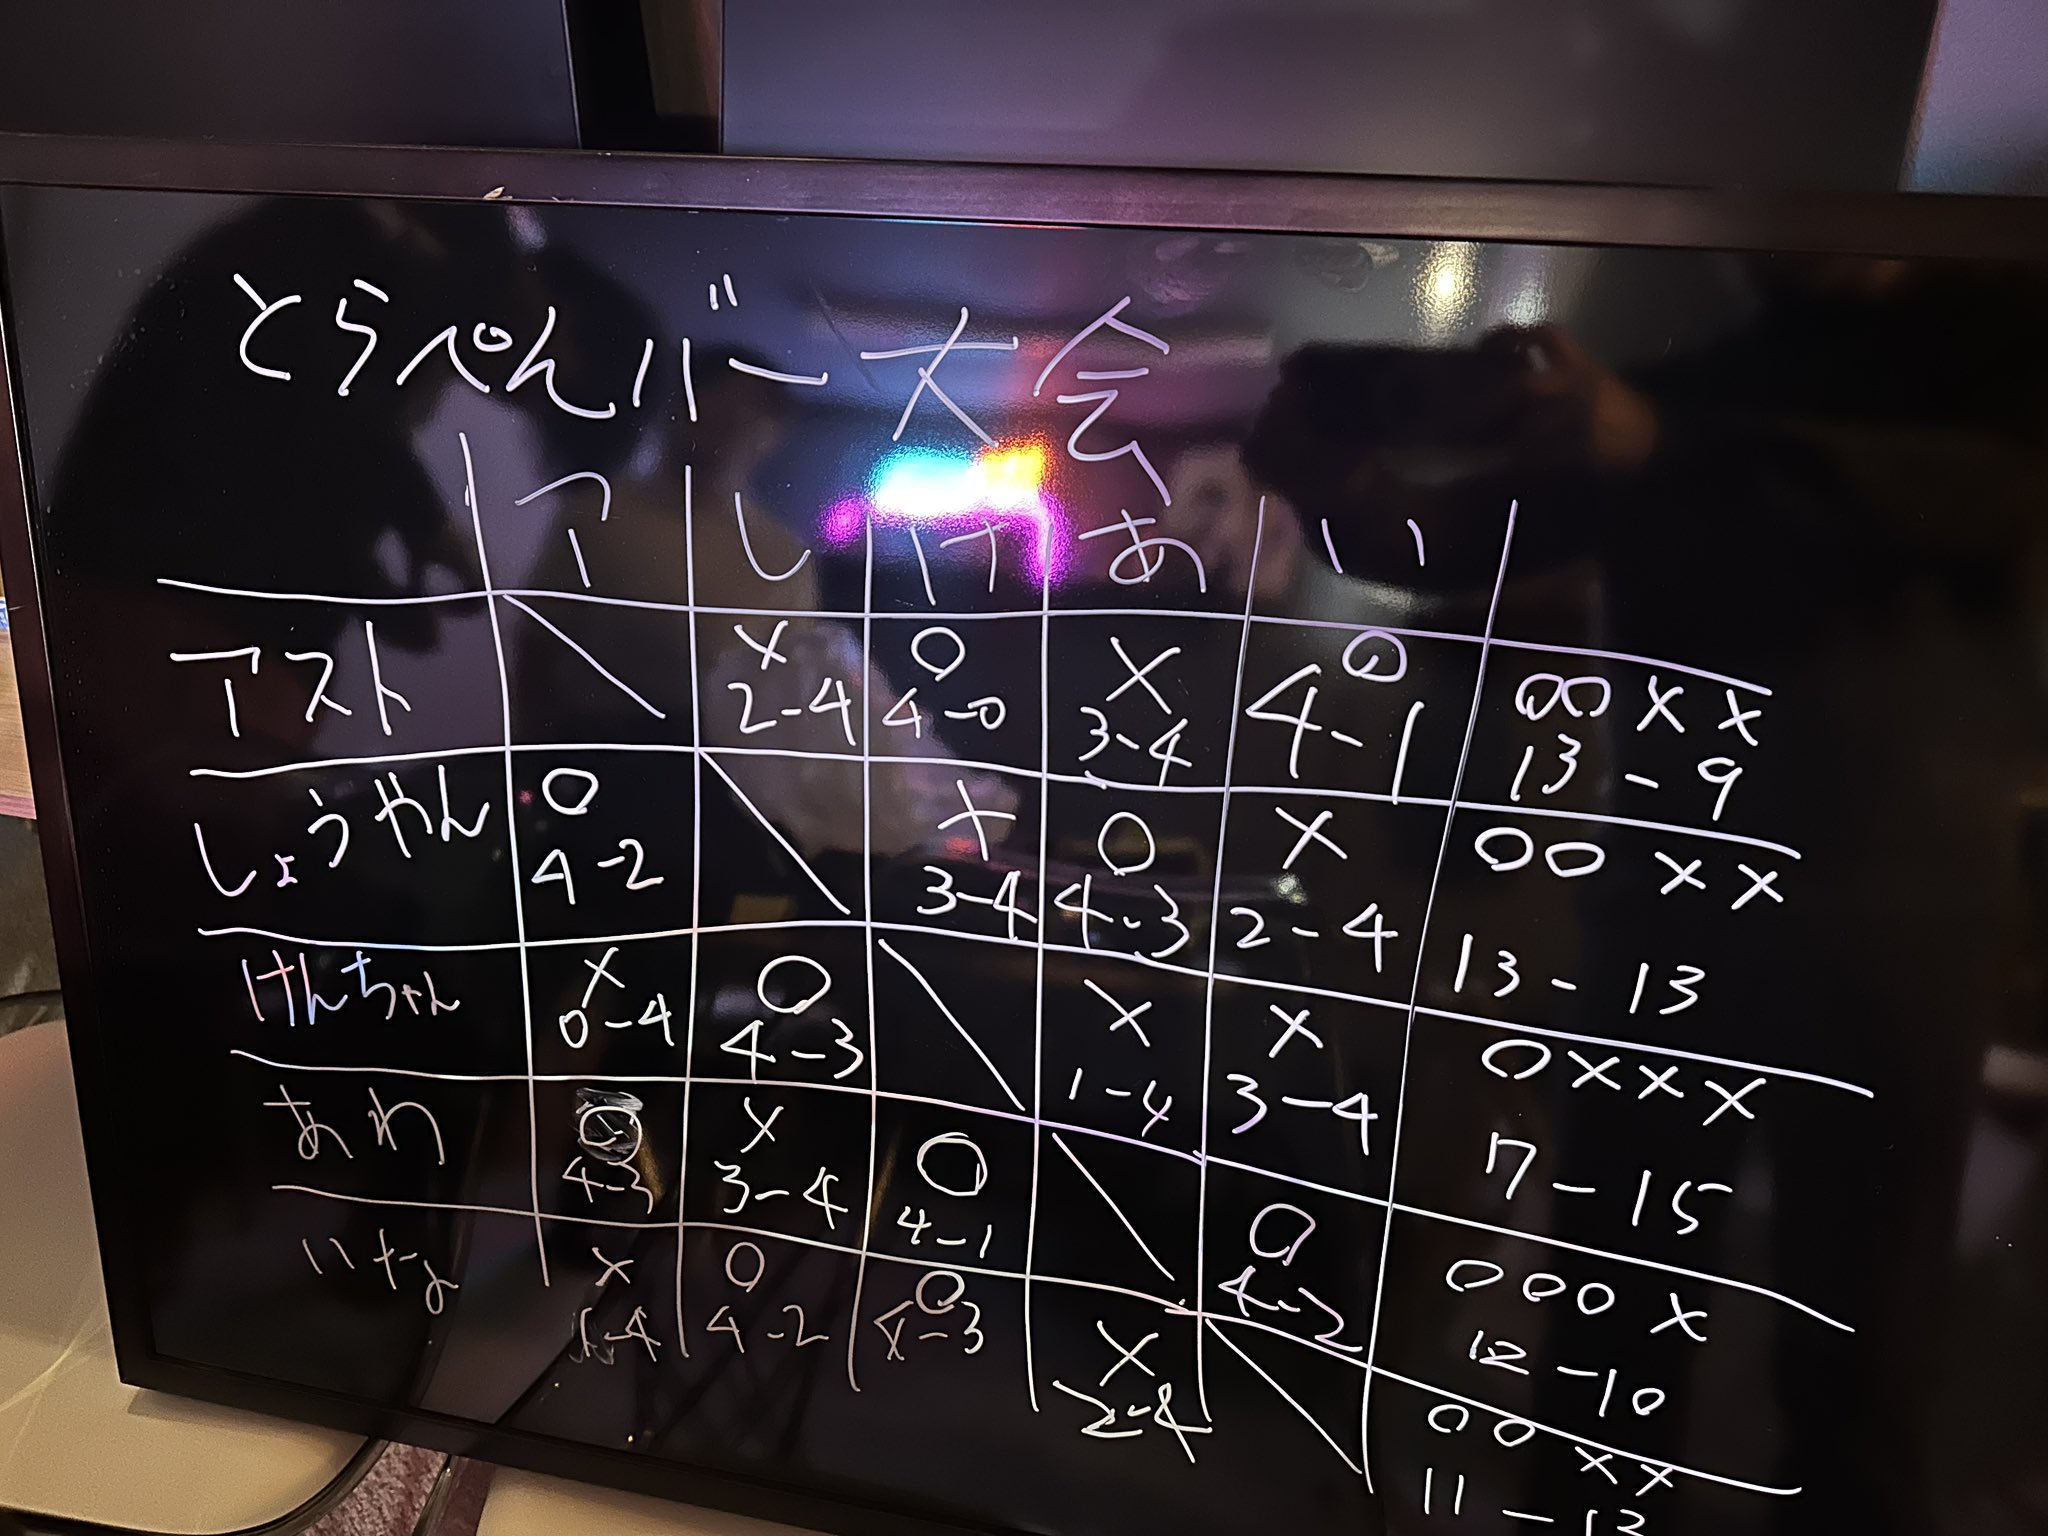 とらぺんバー大会
ア し け あ い
アスト × 2-4 ○ 4-0 × 3-4 ○ 4-1 ○○×× 13-9
しょうやん ○ 4-2 × 3-4 ○ 4-3 × 2-4 ○○×× 13-13
けんちゃん × 0-4 ○ 4-3 × 1-4 × 3-4 ○××× 7-15
あわ ○ 4-3 × 3-4 ○ 4-1 ○ 4-2 ○○○× 12-10
× -4 ○ 4-2 ○ 4-3 × 2-4 ○○×× 11-13